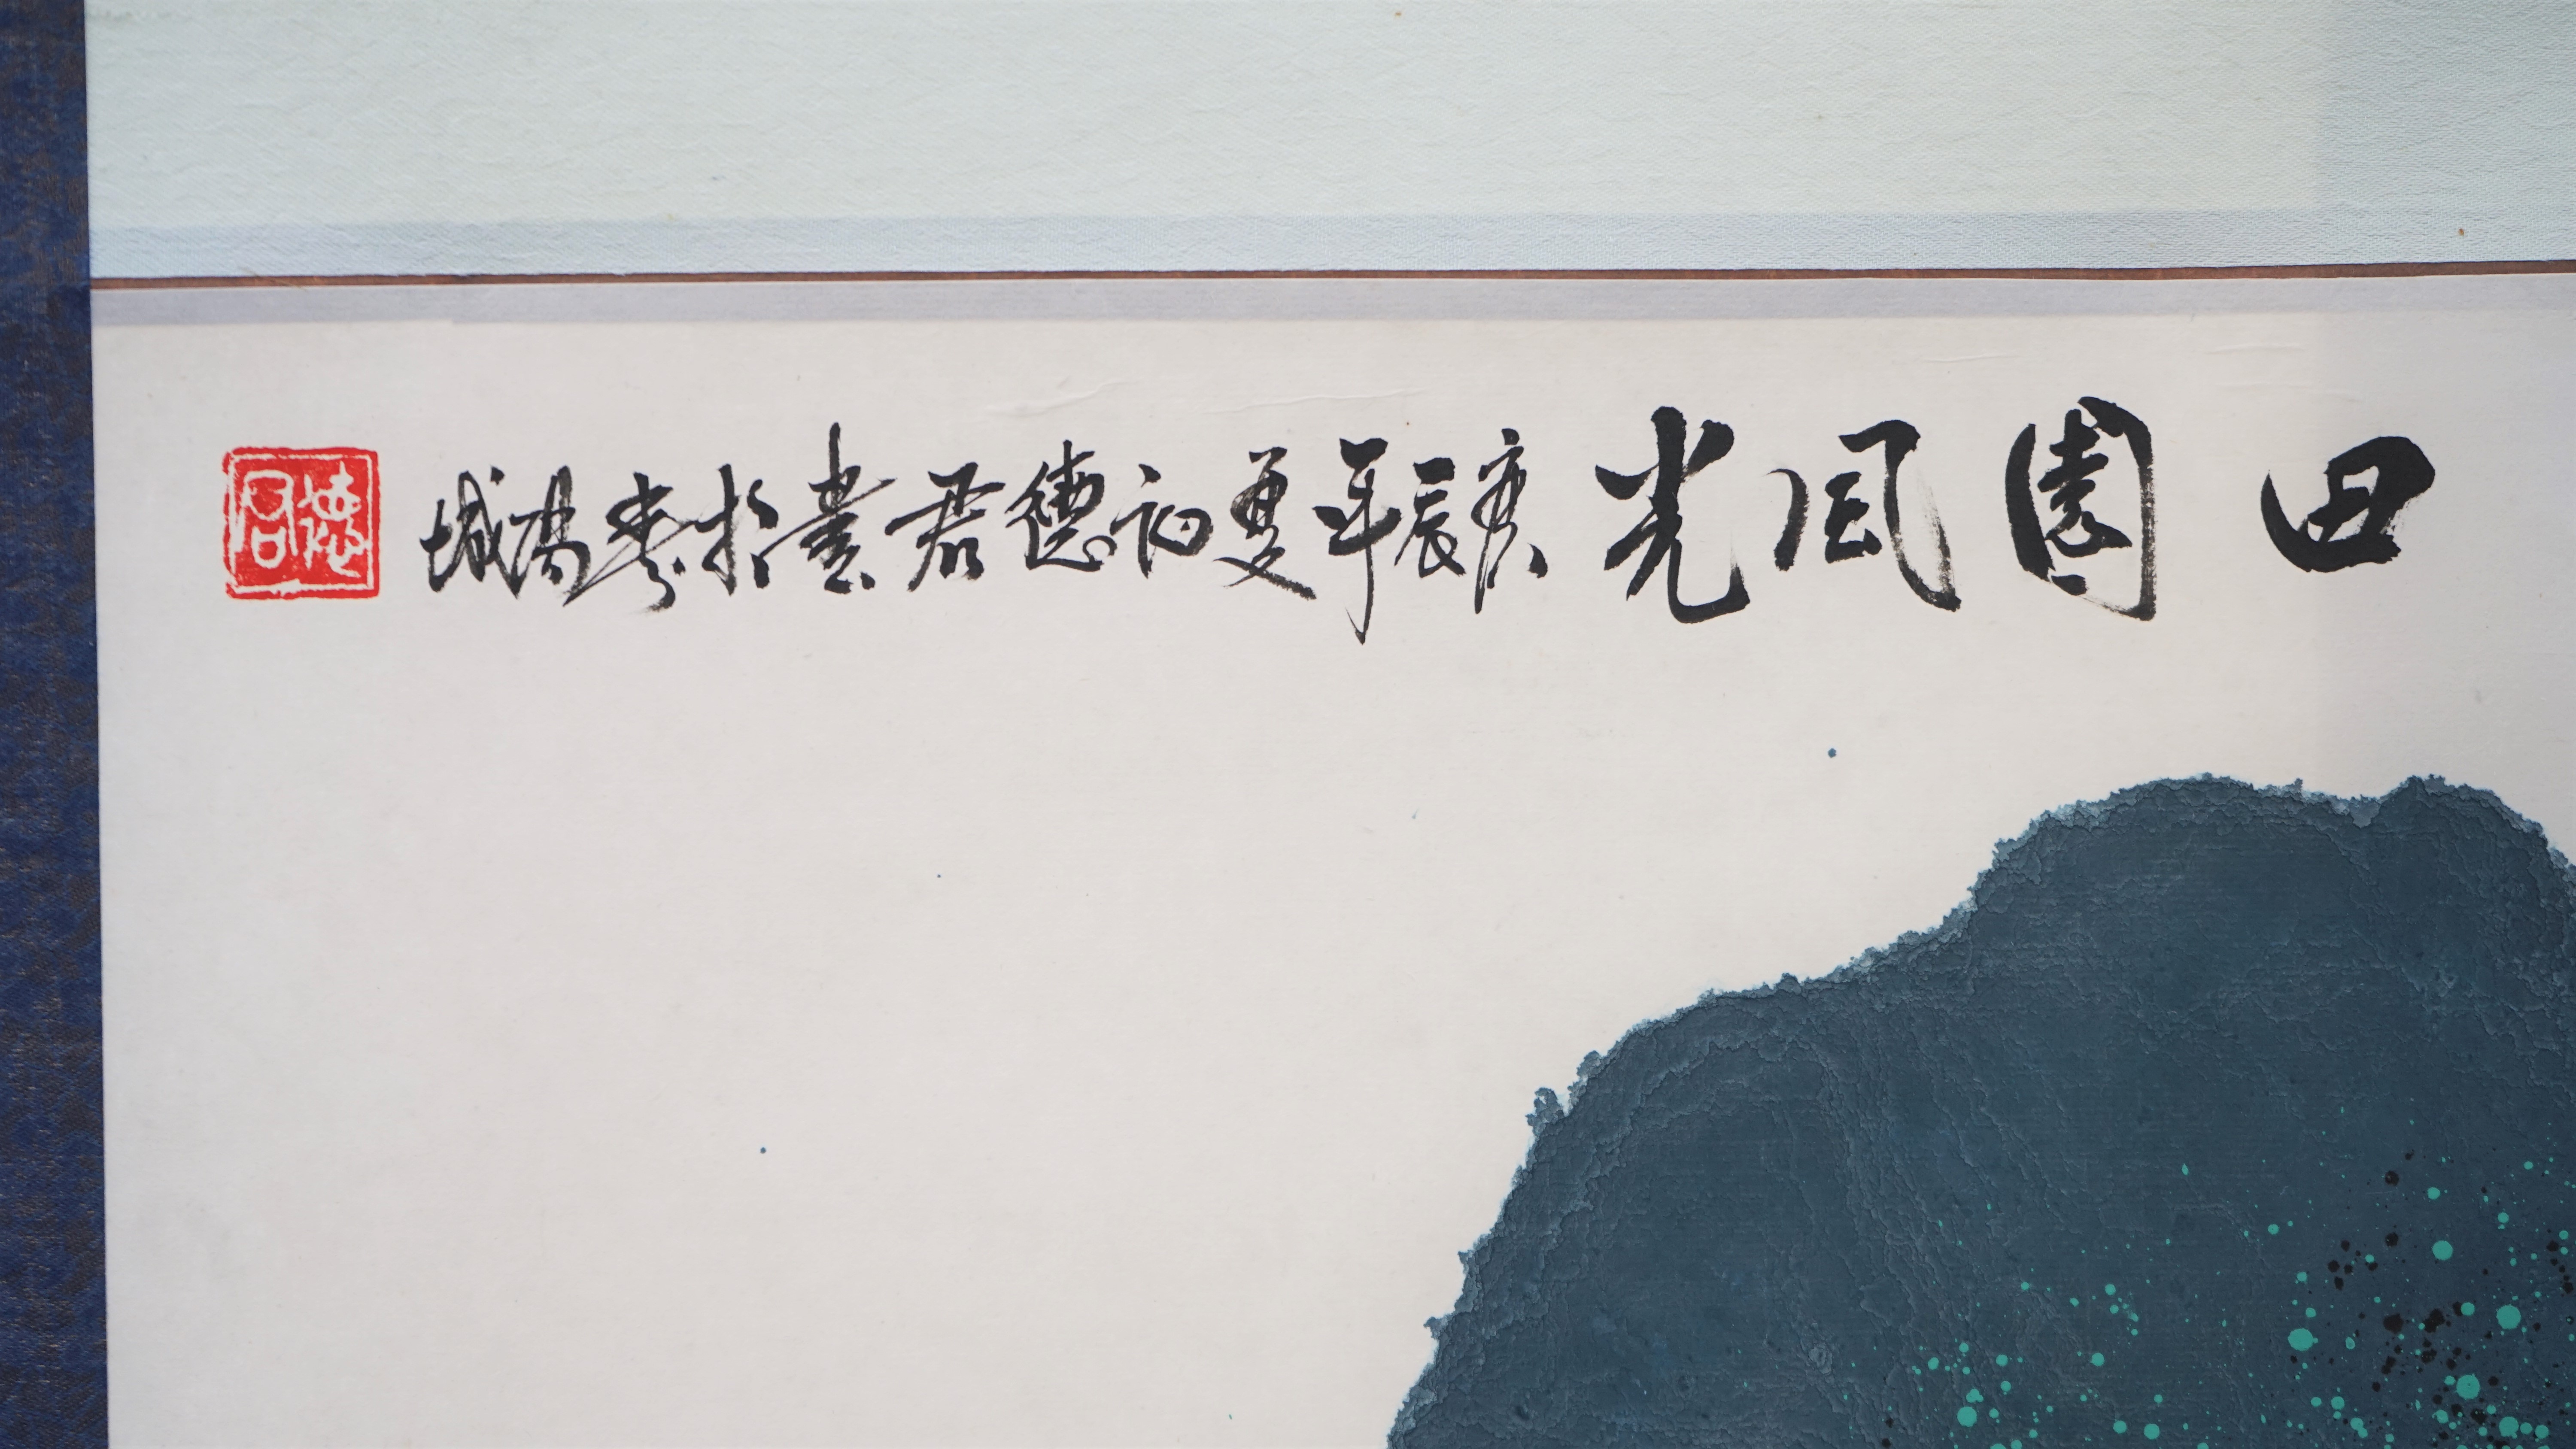 田園風光 庚辰年夏初德君畫於
德君